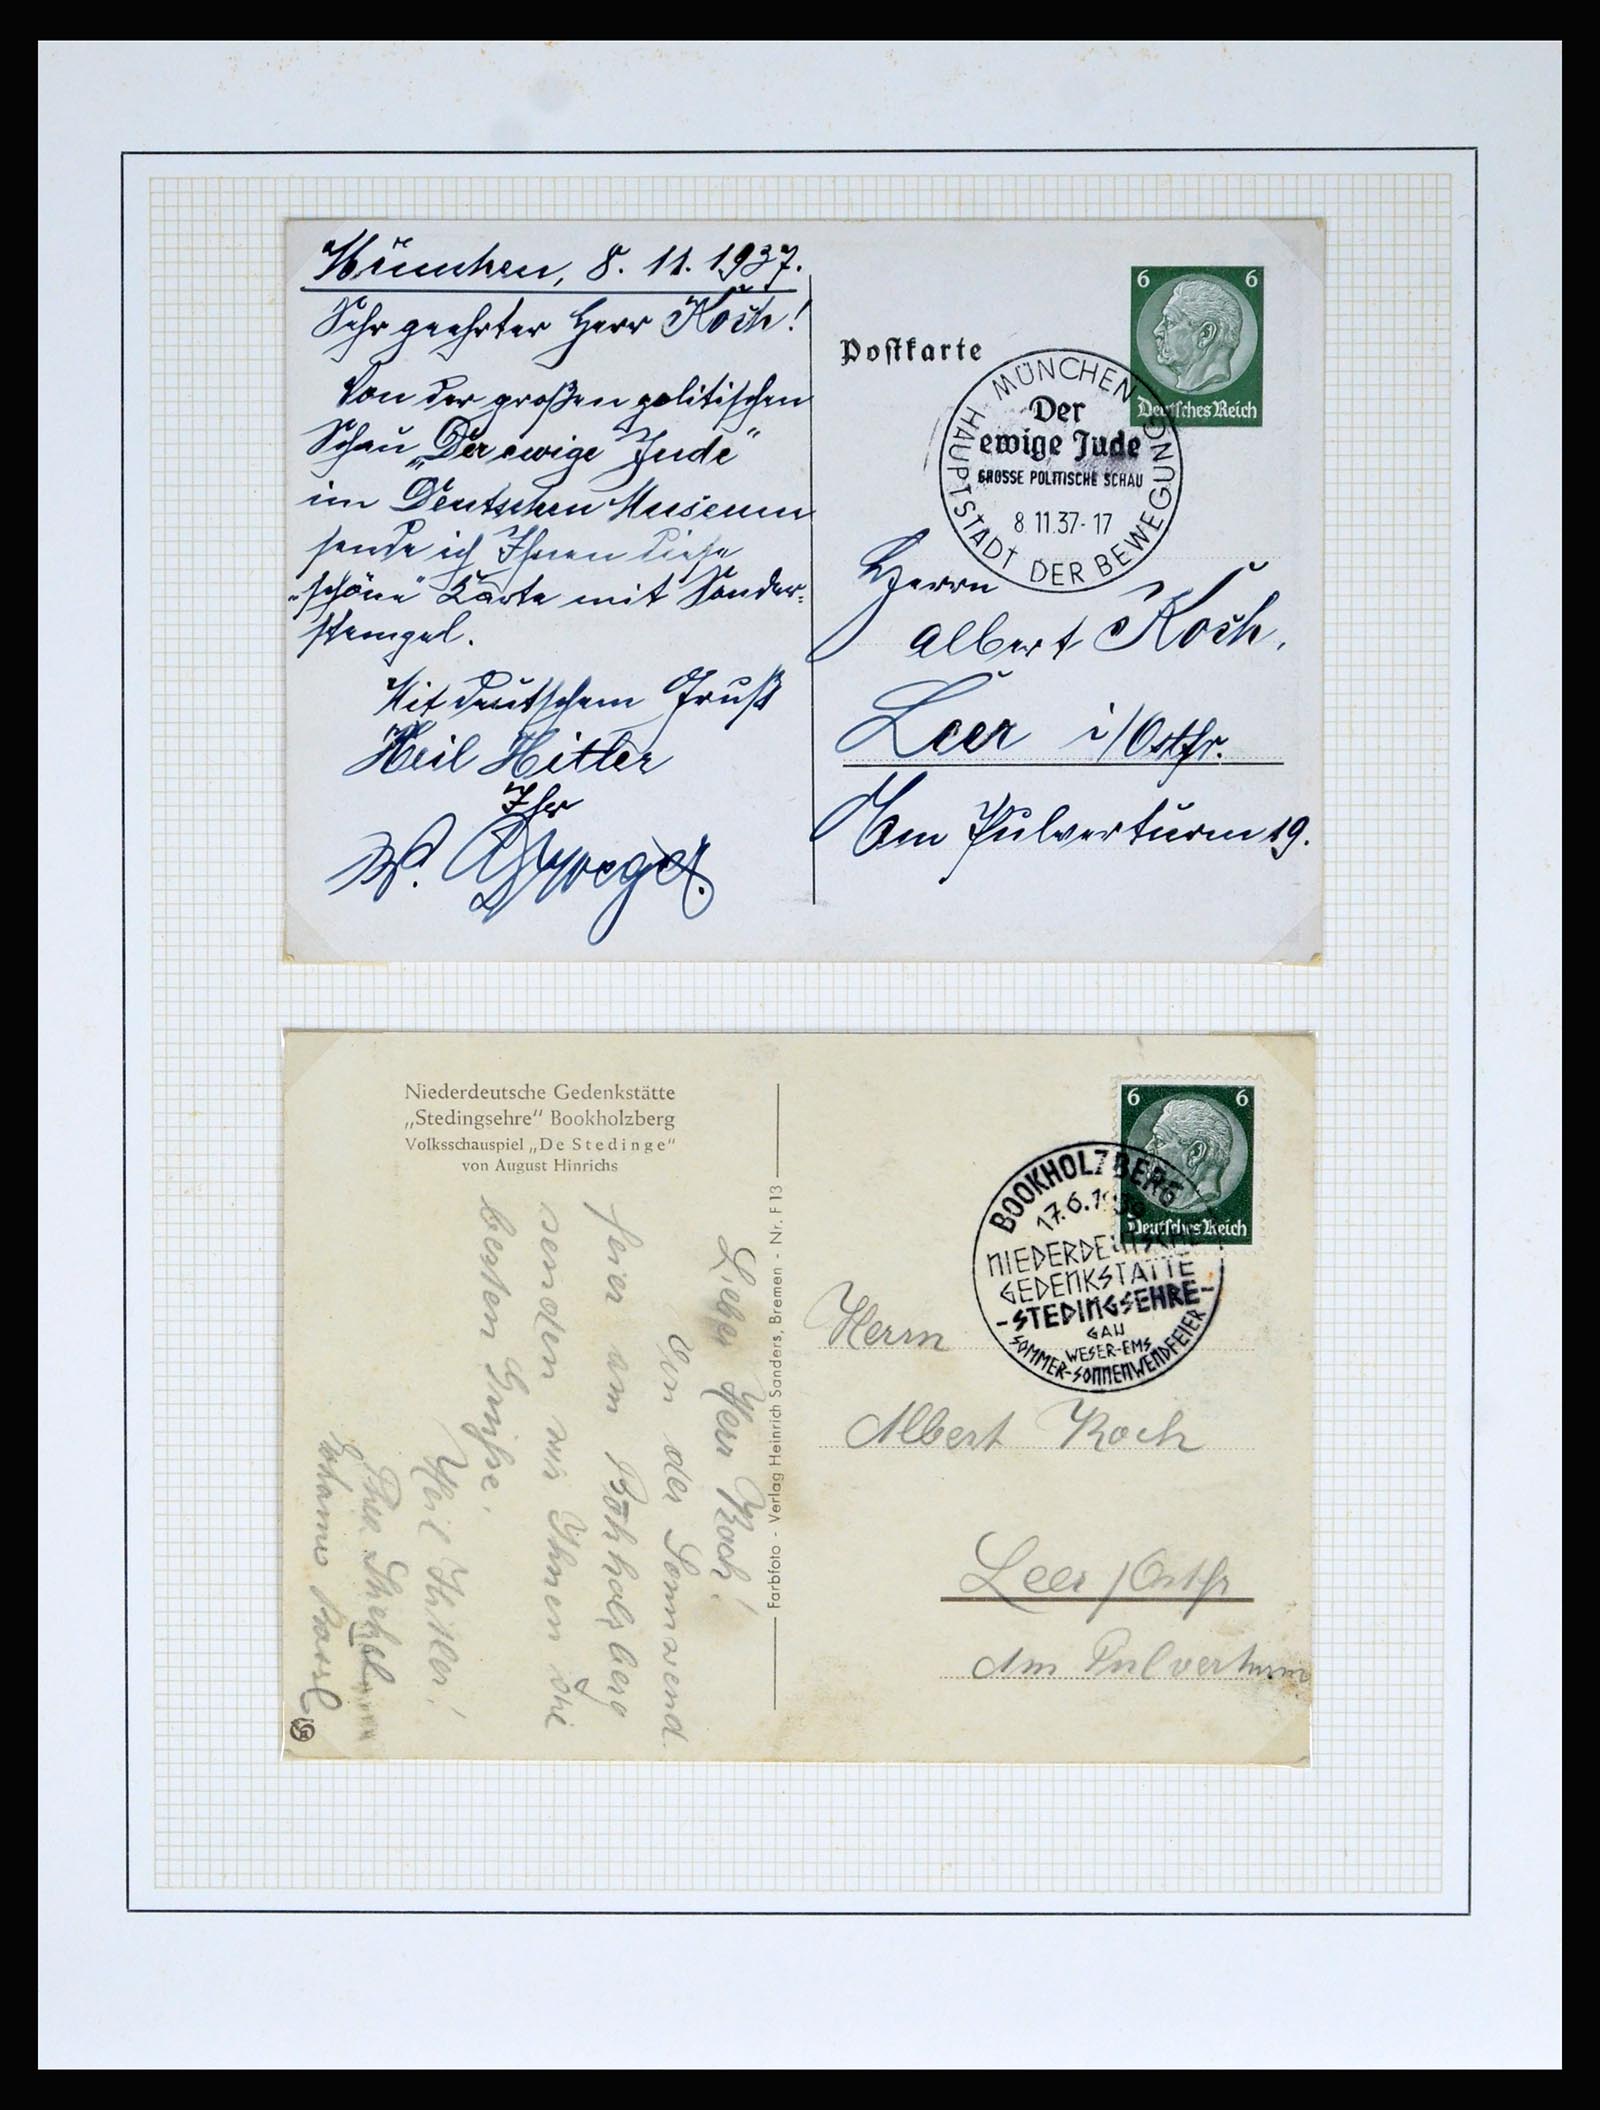 München, 8. 11. 1937.
Sehr geehrter Herr Koch!
Von der großen politischen
Schau „Der ewige Jude"
im Deutschen Museum
sende ich Ihnen diese
„schöne" Karte mit Sonder=
stempel.
Mit deutschem Gruß
Heil Hitler
Ihr
W.
Postkarte
6 6
Deutsches Reich
MÜNCHEN
HAUPTSTADT DER BEWEGUNG
Der
ewige Jude
GROSSE POLITISCHE SCHAU
8.11.37-17
Herrn
Albert Koch,
Leer i/Ostfr.
Am Pulverturm 19.
Niederdeutsche Gedenkstätte
„Stedingsehre" Bookholzberg
Volksschauspiel „De Stedinge"
von August Hinrichs
Lieber Herr Koch!
An der Sonnwend
feier am Bookholzberg
senden wir Ihnen die
besten Grüße.
Heil Hitler!
Farbfoto - Verlag Heinrich Sanders, Bremen - Nr. F 13
6 6
Deutsches Reich
BOOKHOLZBERG
17.6.19
NIEDERDEUTSCHE
GEDENKSTÄTTE
-STEDINGSEHRE-
GAU
WESER-EMS
SOMMER-SONNENWENDFEIER
Herrn
Albert Koch
Leer/Ostfr
Am Pulverturm
19